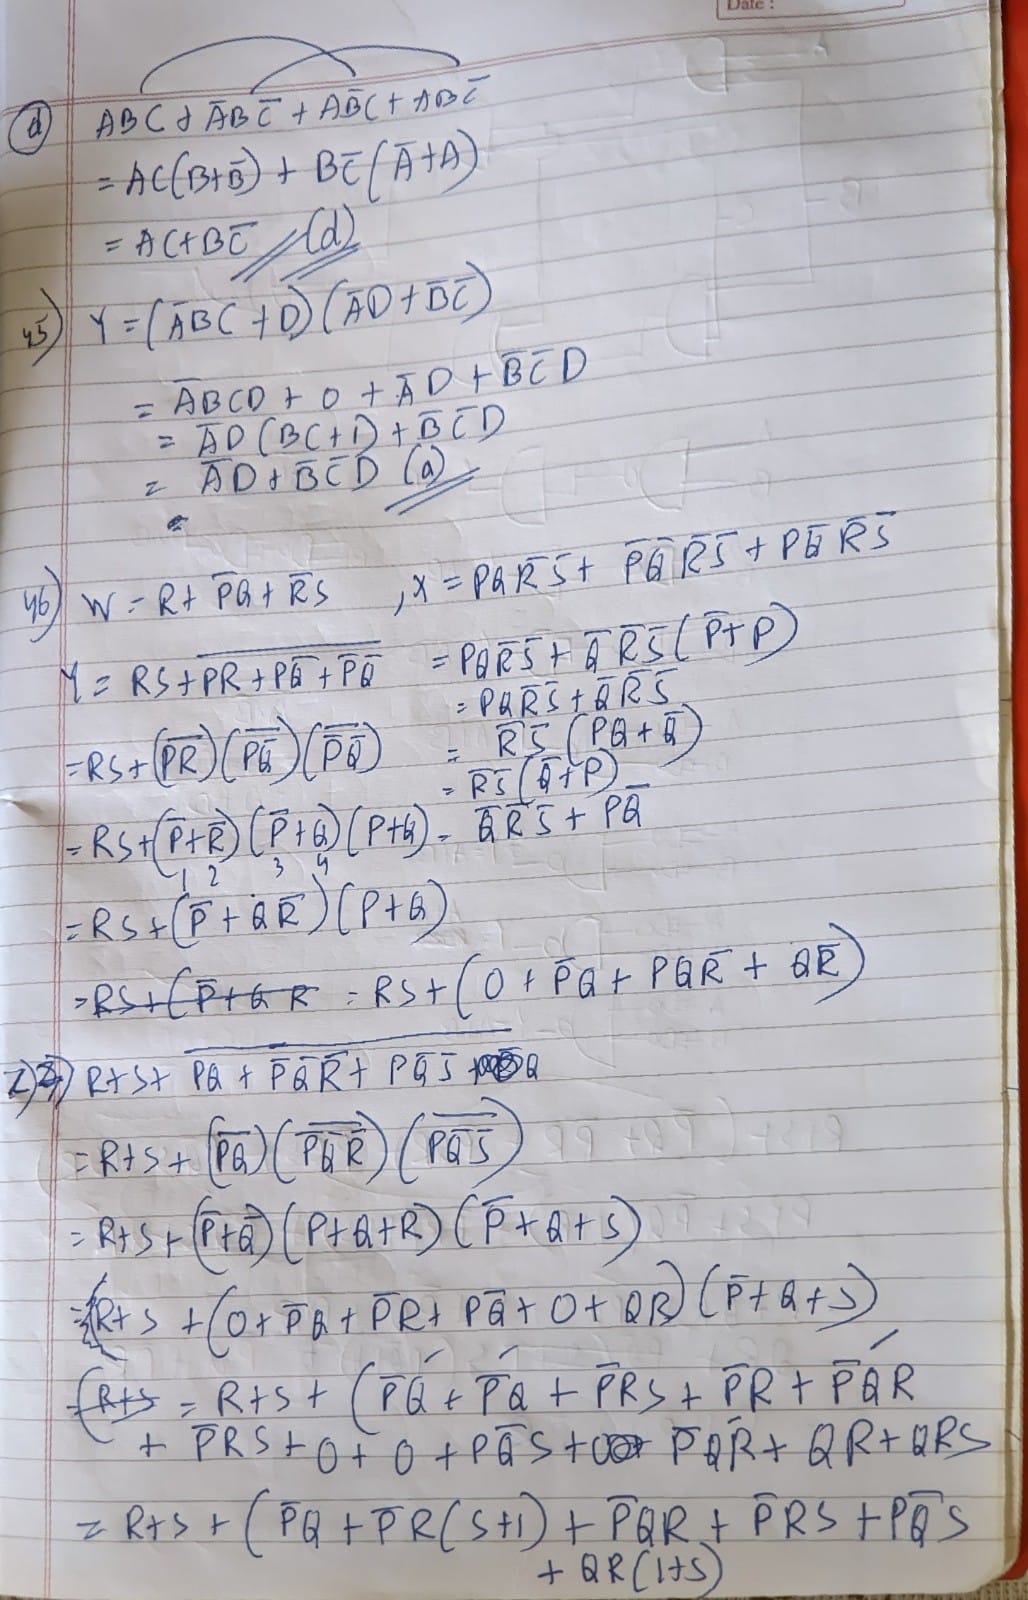 Date :
(d) ABC + A̅BC̅ + AB̅C + ABC̅
= AC(B+B̅) + BC̅(A̅+A)
= AC+BC̅ (d)
45) Y = (A̅BC + D)(A̅D + B̅C̅)
= A̅BCD + 0 + A̅D + B̅C̅D
= A̅D(BC+1) + B̅C̅D
= A̅D + B̅C̅D (a)
46) W = R + P̅Q + R̅S , X = PQR̅S̅ + P̅Q̅R̅S̅ + PQ̅R̅S̅
= PQR̅S̅ + Q̅R̅S̅(P̅+P)
= PQR̅S̅ + Q̅R̅S̅
= R̅S̅(PQ+Q̅)
= R̅S̅(Q̅+P)
= Q̅R̅S̅ + PQ̅
Y = RS + \overline{PR + PQ̅ + P̅Q̅}
= RS + (\overline{PR})(\overline{PQ̅})(\overline{P̅Q̅})
= RS + (P̅+R̅)(P̅+Q)(P+Q)
1 2 3 4
= RS + (P̅ + QR̅)(P+Q)
= RS + (P̅+Q R = RS + (0 + P̅Q + PQR̅ + QR̅)
Z) R+S+ \overline{PQ + P̅Q̅R̅ + PQ̅S̅} Q
= R+S + (\overline{PQ})(\overline{P̅Q̅R̅})(\overline{PQ̅S̅})
= R+S + (P̅+Q̅)(P+Q+R)(P̅+Q+S)
= R+S + (0 + P̅Q + P̅R + PQ̅ + 0 + QR)(P̅+Q+S)
(R+S = R+S + (P̅Q + P̅Q + P̅RS + P̅R + P̅QR
+ P̅RS + 0 + 0 + PQ̅S + P̅QR + QR + QRS
= R+S + (P̅Q + P̅R(S+1) + P̅QR + P̅RS + PQ̅S
+ QR(1+S)